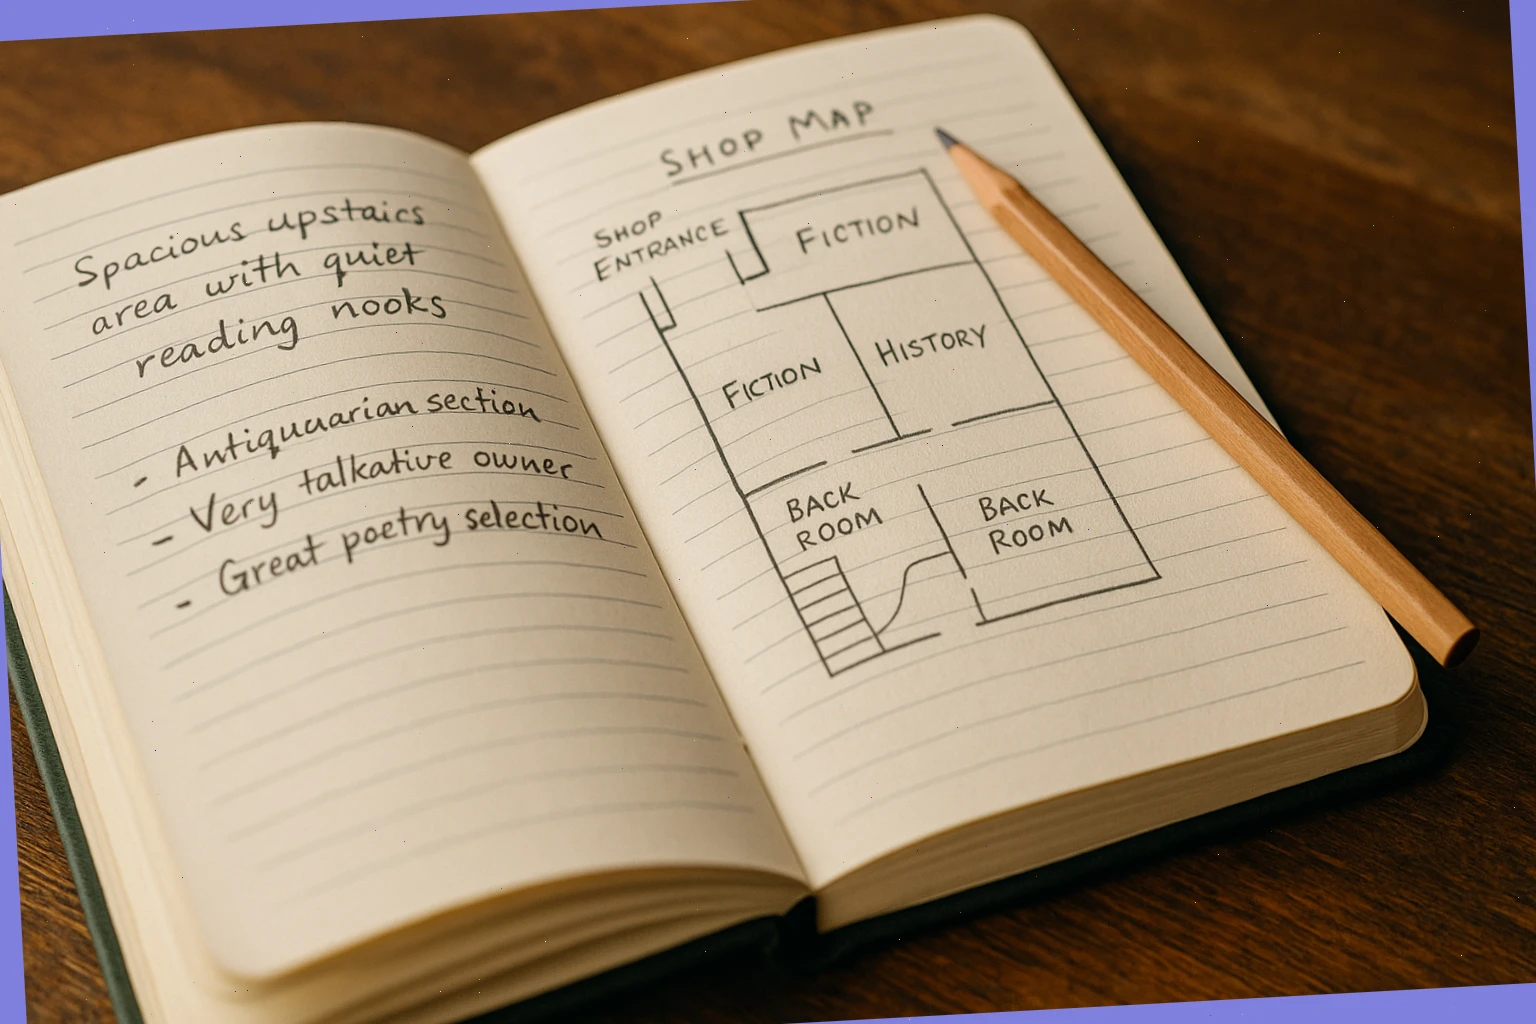 Spacious upstairs
area with quiet
reading nooks
- Antiquuarian section
- Very talkative owner
- Great poetry selection
SHOP MAP
SHOP
ENTRANCE
FICTION
FICTION
HISTORY
BACK
ROOM
BACK
ROOM